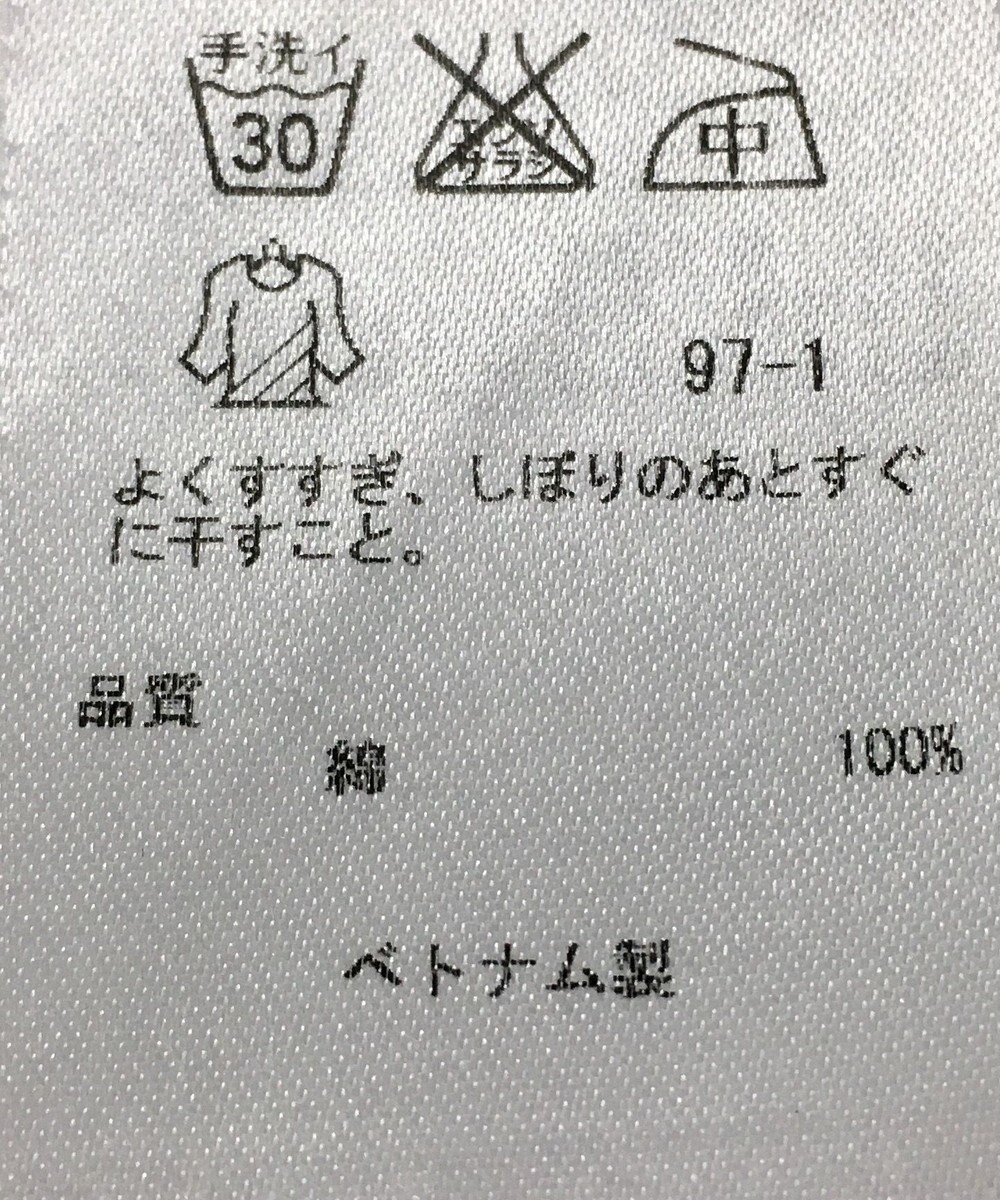 手洗イ
30
エンソ
サラシ
中
97-1
よくすすぎ、しぼりのあとすぐ
に干すこと。
品質
綿 100%
ベトナム製